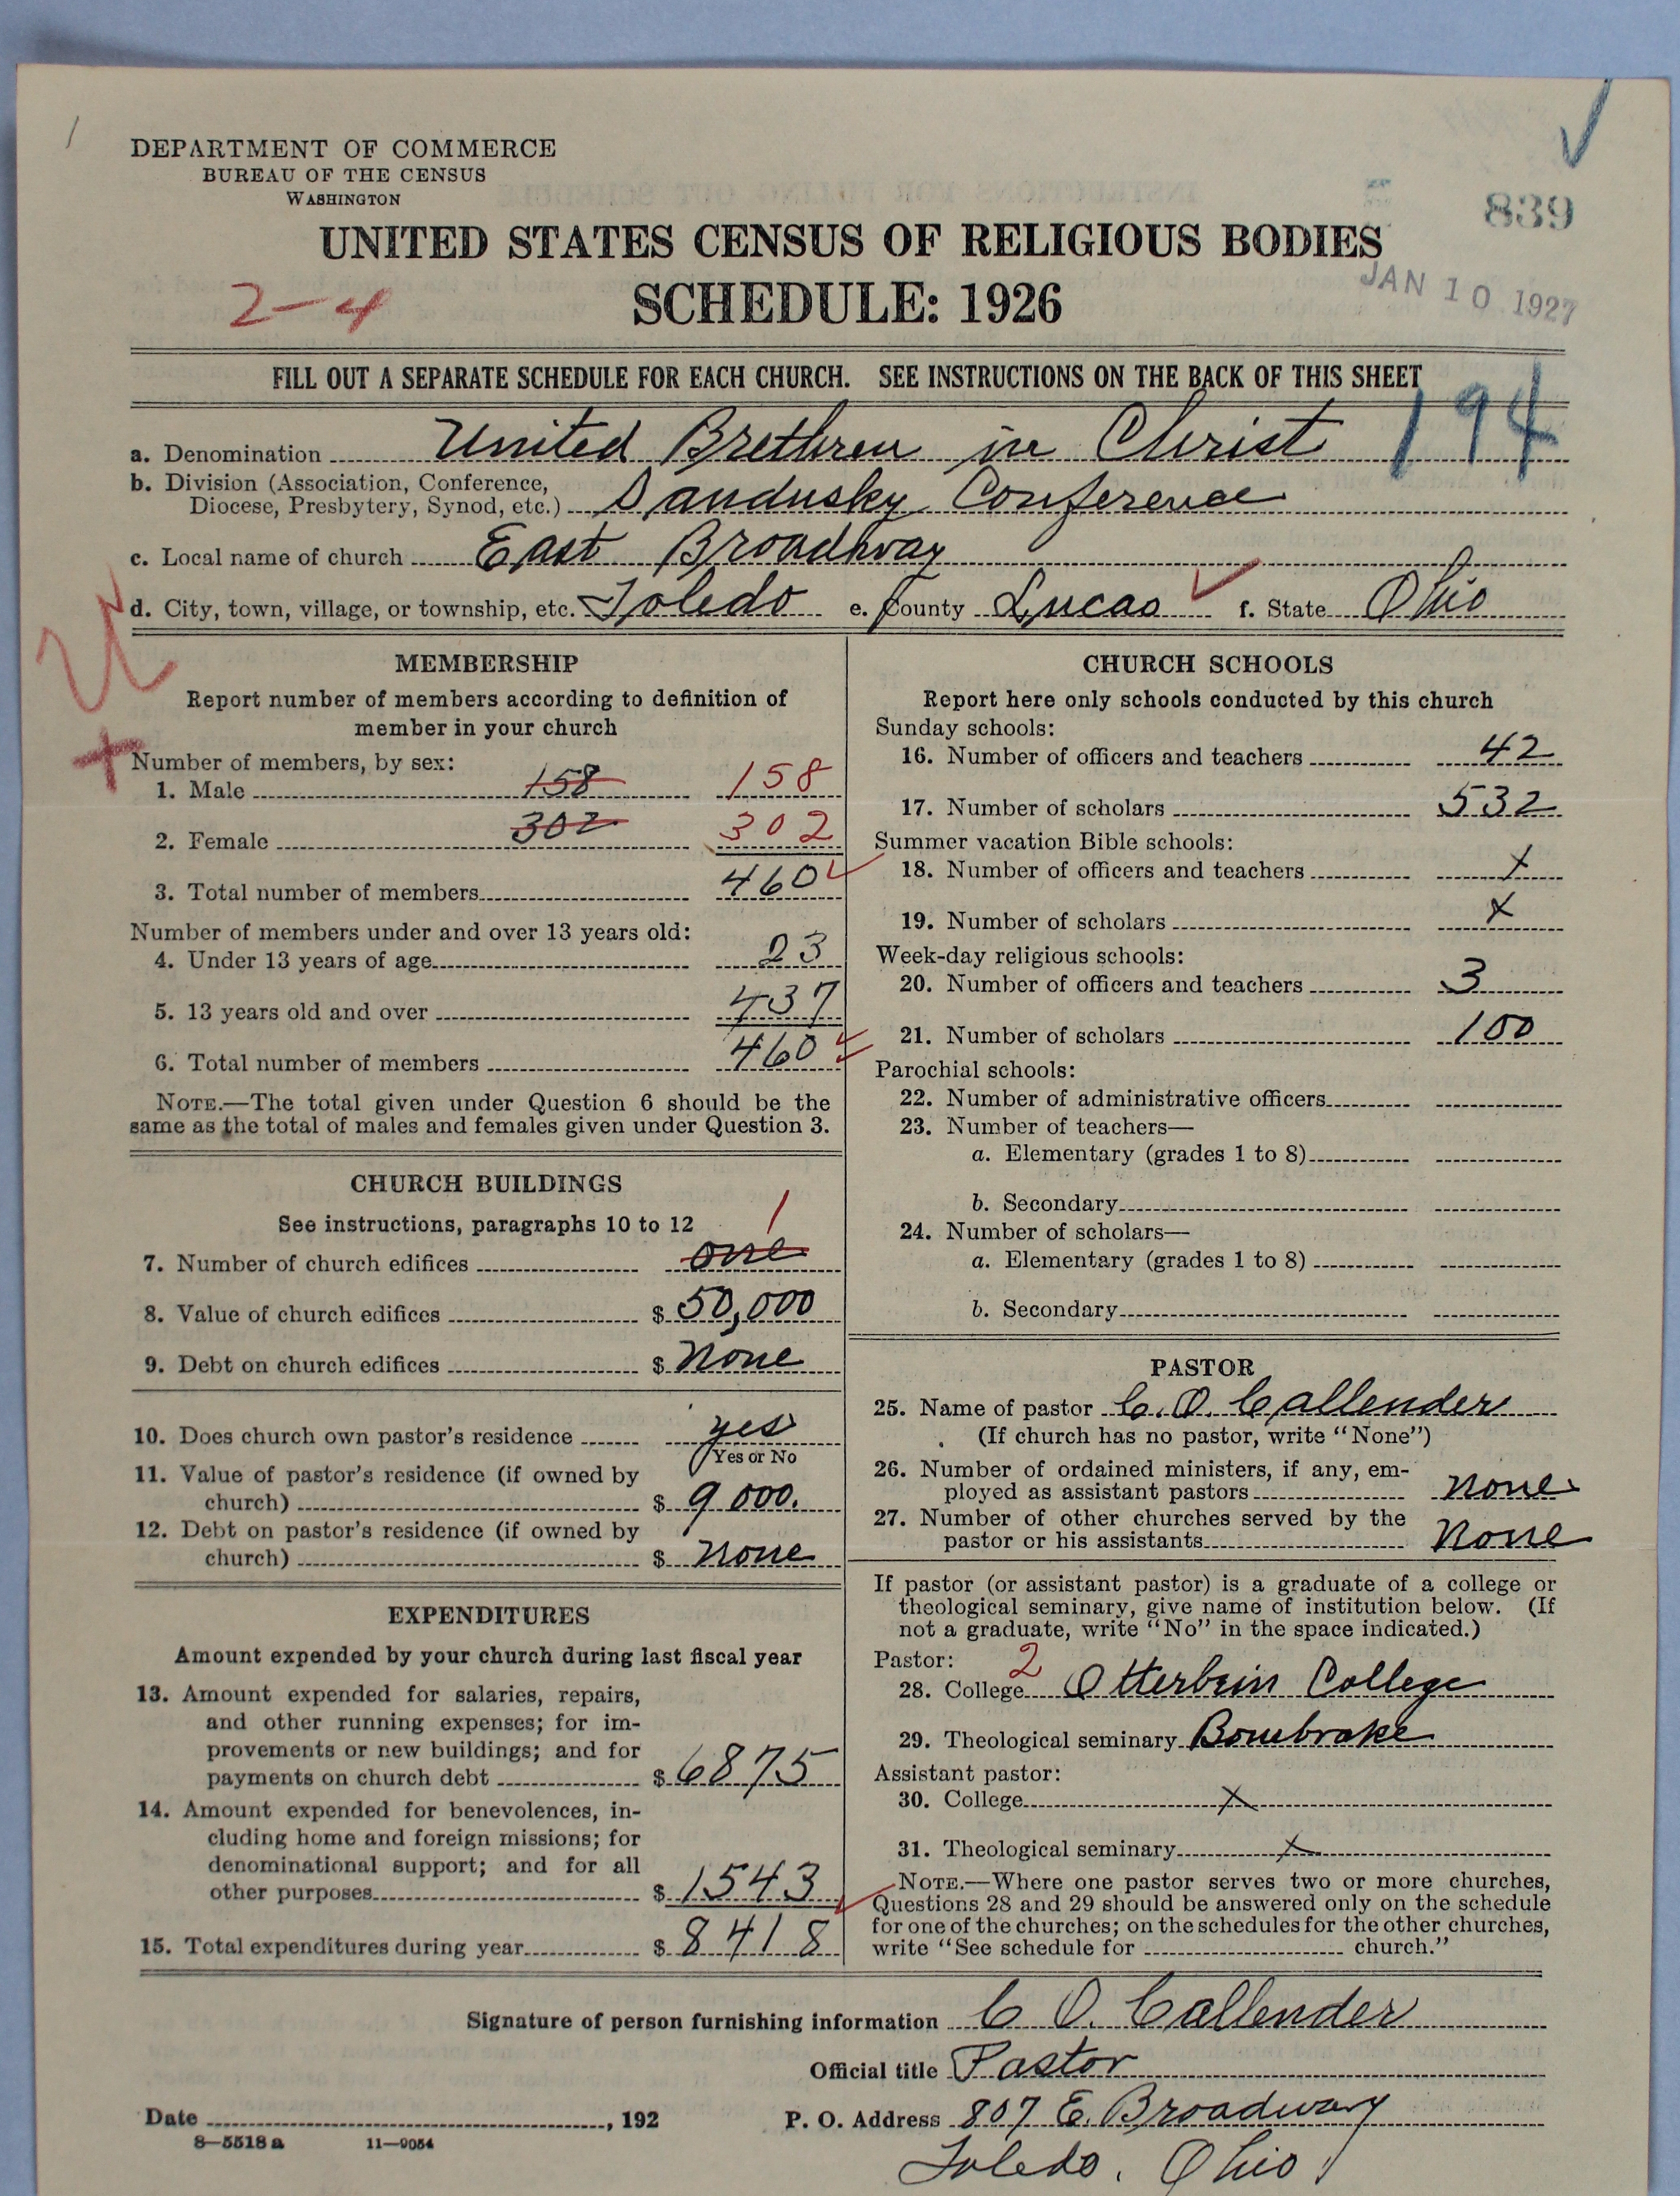 DEPARTMENT OF COMMERCE
BUREAU OF THE CENSUS
WASHINGTON
839
UNITED STATES CENSUS OF RELIGIOUS BODIES
JAN 10 1927
2-4
SCHEDULE: 1926
FILL OUT A SEPARATE SCHEDULE FOR EACH CHURCH. SEE INSTRUCTIONS ON THE BACK OF THIS SHEET
194
a. Denomination United Brethren in Christ
b. Division (Association, Conference,
Diocese, Presbytery, Synod, etc.) Sandusky Conference
c. Local name of church East Broadway
d. City, town, village, or township, etc. Toledo e. County Lucas f. State Ohio
MEMBERSHIP
Report number of members according to definition of
member in your church
Number of members, by sex:
1. Male 158 158
2. Female 302 302
3. Total number of members 460
Number of members under and over 13 years old:
4. Under 13 years of age 23
5. 13 years old and over 437
6. Total number of members 460
NOTE.—The total given under Question 6 should be the
same as the total of males and females given under Question 3.
CHURCH BUILDINGS
See instructions, paragraphs 10 to 12
1
7. Number of church edifices one
8. Value of church edifices $ 50,000
9. Debt on church edifices $ None
10. Does church own pastor's residence yes
Yes or No
11. Value of pastor's residence (if owned by
church) $ 9 000.
12. Debt on pastor's residence (if owned by
church) $ None
EXPENDITURES
Amount expended by your church during last fiscal year
13. Amount expended for salaries, repairs,
and other running expenses; for im-
provements or new buildings; and for
payments on church debt $ 6875
14. Amount expended for benevolences, in-
cluding home and foreign missions; for
denominational support; and for all
other purposes $ 1543
15. Total expenditures during year $ 8418
CHURCH SCHOOLS
Report here only schools conducted by this church
Sunday schools:
16. Number of officers and teachers 42
17. Number of scholars 532
Summer vacation Bible schools:
18. Number of officers and teachers x
19. Number of scholars x
Week-day religious schools:
20. Number of officers and teachers 3
21. Number of scholars 100
Parochial schools:
22. Number of administrative officers
23. Number of teachers—
a. Elementary (grades 1 to 8)
b. Secondary
24. Number of scholars—
a. Elementary (grades 1 to 8)
b. Secondary
PASTOR
25. Name of pastor C. O. Callender
(If church has no pastor, write "None")
26. Number of ordained ministers, if any, em-
ployed as assistant pastors None
27. Number of other churches served by the
pastor or his assistants None
If pastor (or assistant pastor) is a graduate of a college or
theological seminary, give name of institution below. (If
not a graduate, write "No" in the space indicated.)
Pastor: 2
28. College Otterbein College
29. Theological seminary Bonebrake
Assistant pastor:
30. College x
31. Theological seminary x
NOTE.—Where one pastor serves two or more churches,
Questions 28 and 29 should be answered only on the schedule
for one of the churches; on the schedules for the other churches,
write "See schedule for church."
Signature of person furnishing information C O. Callender
Official title Pastor
Date , 192
P. O. Address 807 E. Broadway
8-5518a 11-9054
Toledo, Ohio